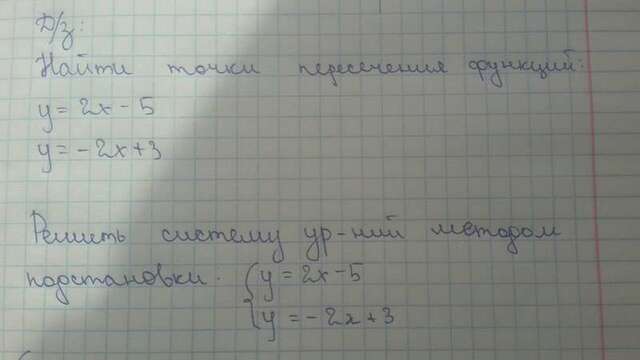 Д/з:
Найти точки пересечения функций:
y = 2x - 5
y = - 2x + 3
Решить систему ур-ний методом
подстановки. { y = 2x - 5
y = - 2x + 3